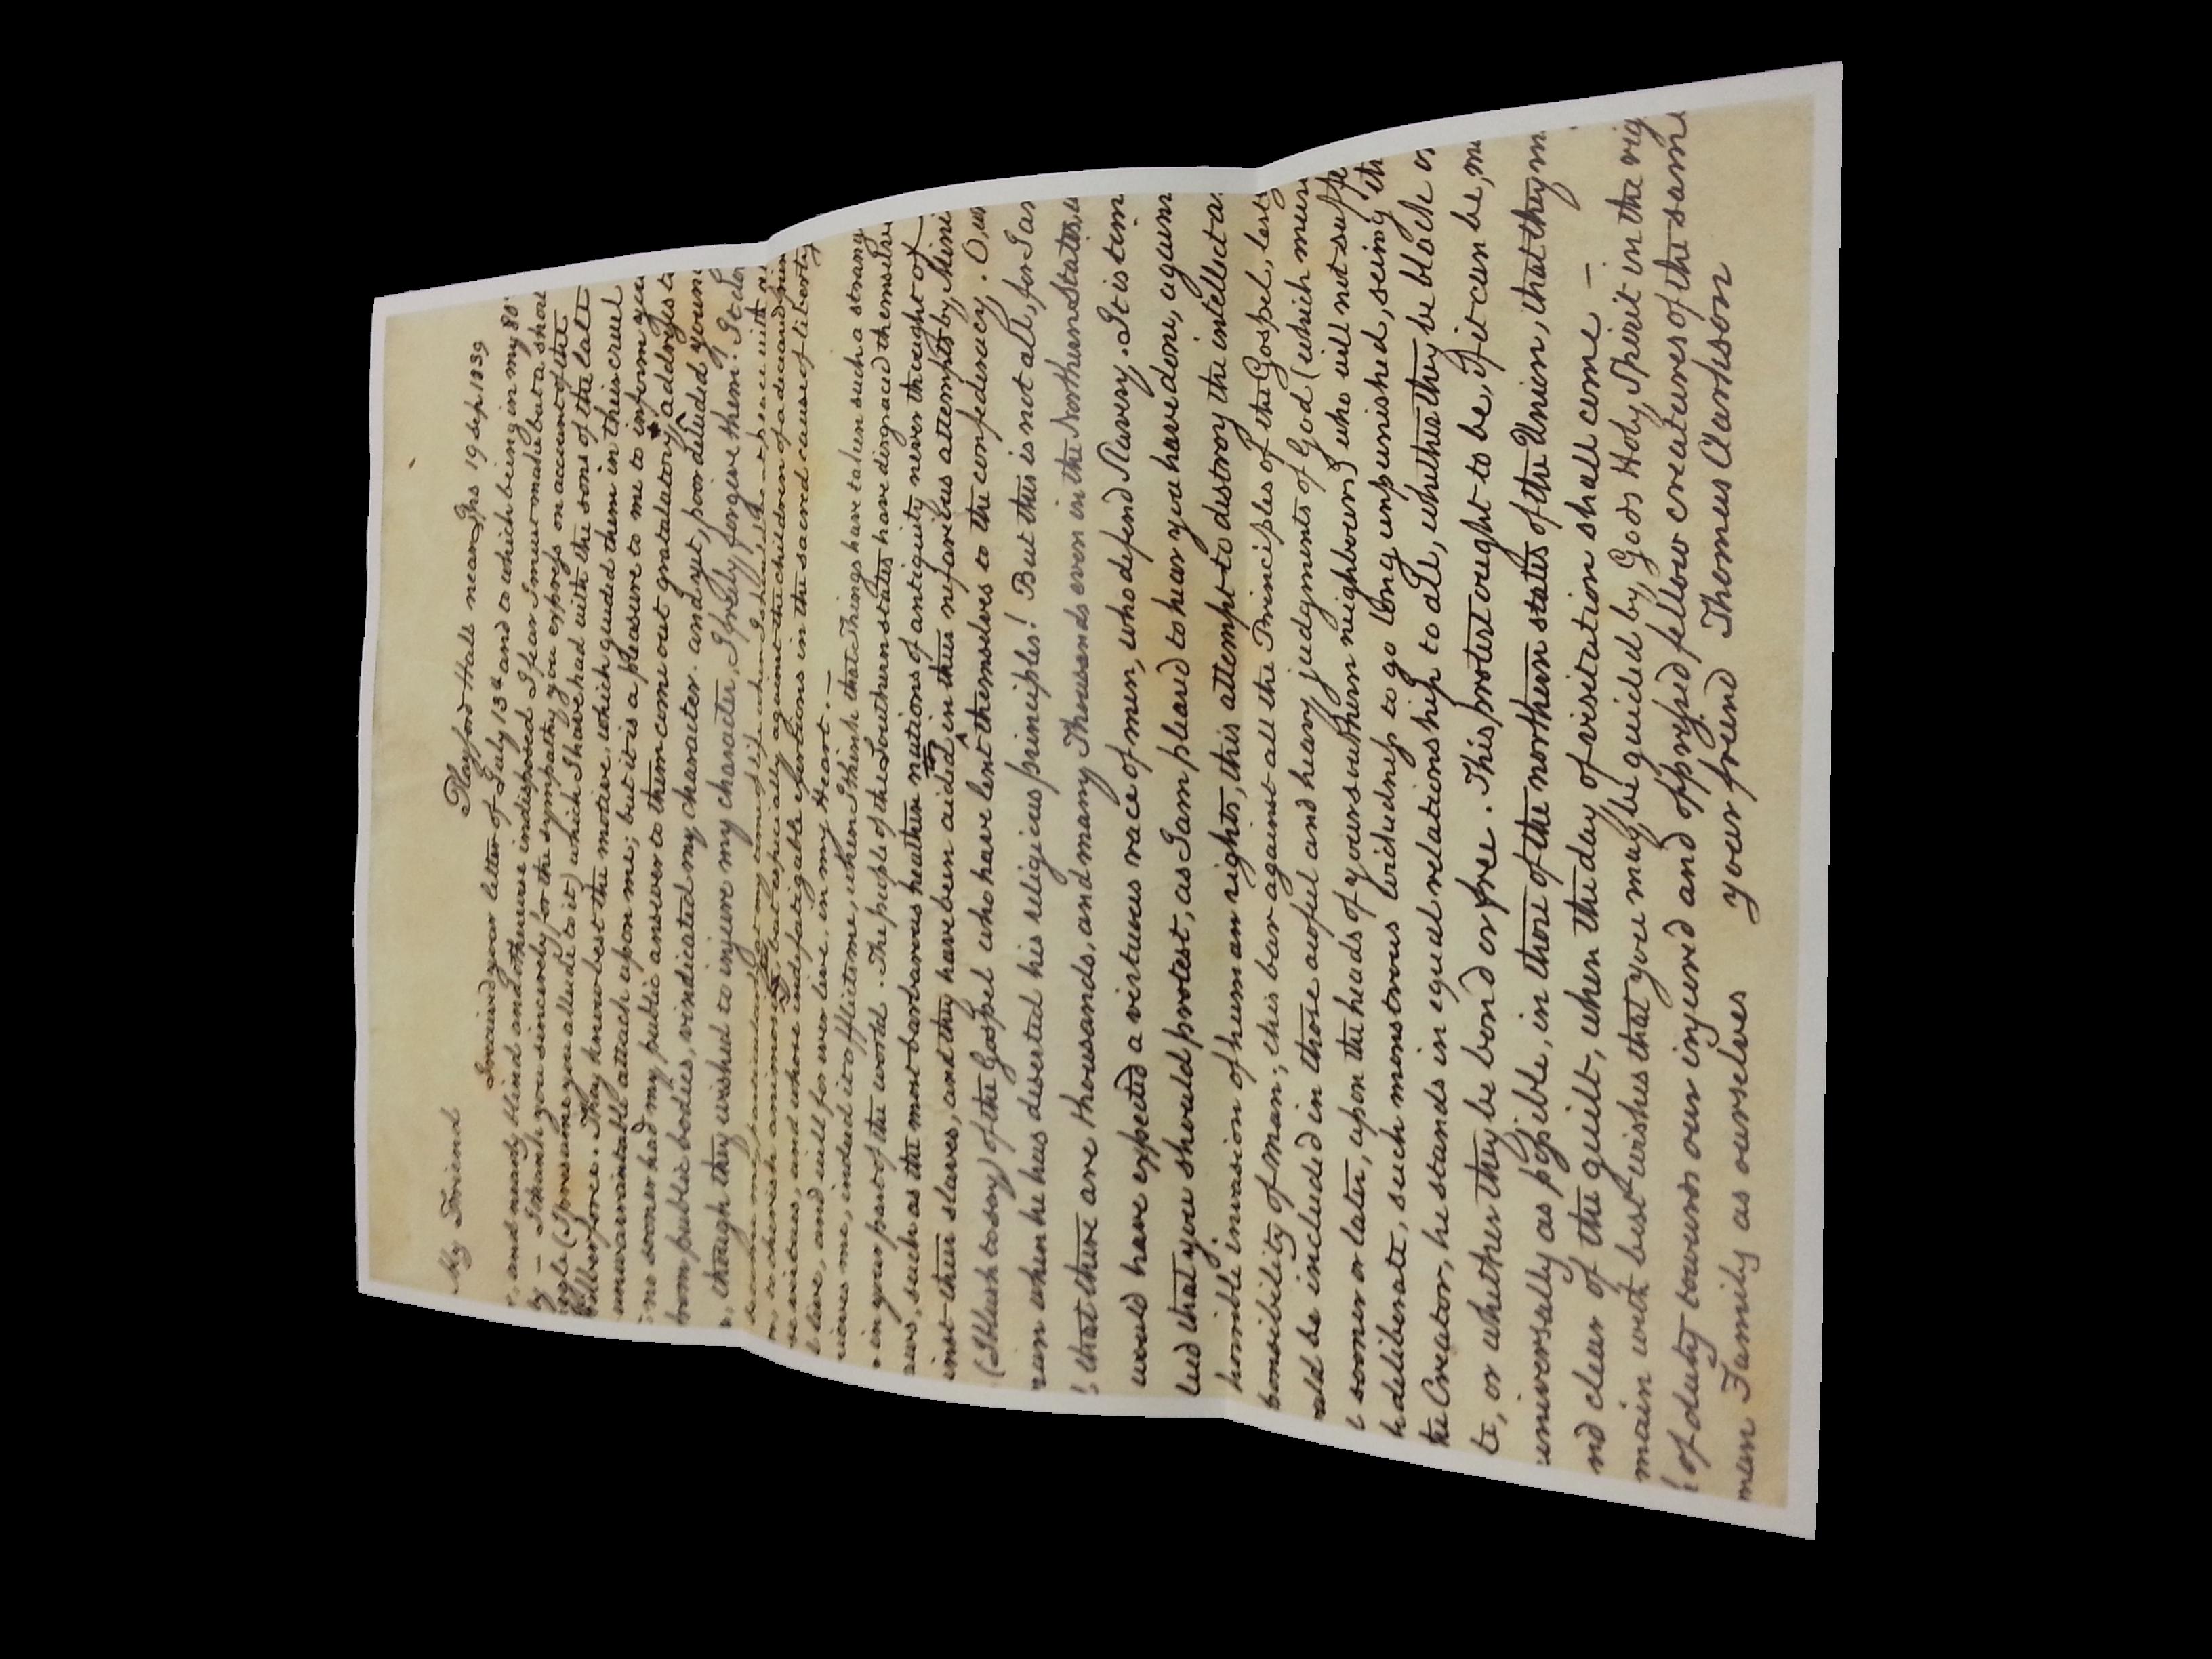 Playford Hall near Ips 19 Sep 1839
My Friend
I received your letter of July 13th and to which being in my 80
, and nearly blind and otherwise indisposed I fear I must make but a shor
ly — I thank you sincerely for the sympathy you express on account of the
ggle (I presume you allude to it) which I have had with the sons of the late
Wilberforce. They know best the motive, which guided them in their cruel
unwarrantable attack upon me; but it is a pleasure to me to inform you
no sooner had my public answer to them come out gratulatory addresses
from public bodies, vindicated my character. and yet, poor deluded youn
, though they wished to injure my character, I freely forgive them. It
time of life when I should be at peace with
, to cherish animosity but especially against the children of a deceased
se virtues, and whose indefatigable exertions in the sacred cause of liberty
l live, and will for ever live, in my Heart. —
rieves me, indeed it afflicts me, when I think that Things have taken such a strang
in your part of the world. The people of the Southern states have disgraced themselve
aws, such as the most barbarous heathen nations of antiquity never thought of
inst their slaves, and they have been aided in their nefarious attempts by Mini
(I blush to say) of the Gospel who have lent themselves to the confederacy. O, un
man when he has deserted his religious principles! But this is not all, for I am
, that there are thousands, and many Thousands even in the Northern States, w
would have expected a virtuous race of men, who defend Slavery. It is tim
led that you should protest, as I am pleased to hear you have done, again
horrible invasion of human rights, this attempt to destroy the intellect a
ponsibility of man; this bar against all the Principles of the Gospel, lest
uld be included in those awful and heavy judgments of God (which mus
l sooner or later, upon the heads of your southern neighbours) who will not suffe
h deliberate, such monstrous wickedness to go long unpunished, seeing th
the Creator, he stands in equal relationship to all, whether they be black o
te, or whether they be bond or free. This protest ought to be, if it can be, m
universally as possible, in those of the northern states of the Union, that they m
nd clear of the guilt, when the day of visitation shall come —
main with best wishes that you may be guided by Gods Holy Spirit in the rig
of duty towards our injured and oppressed fellow creatures of the same
man Family as ourselves your friend Thomas Clarkson